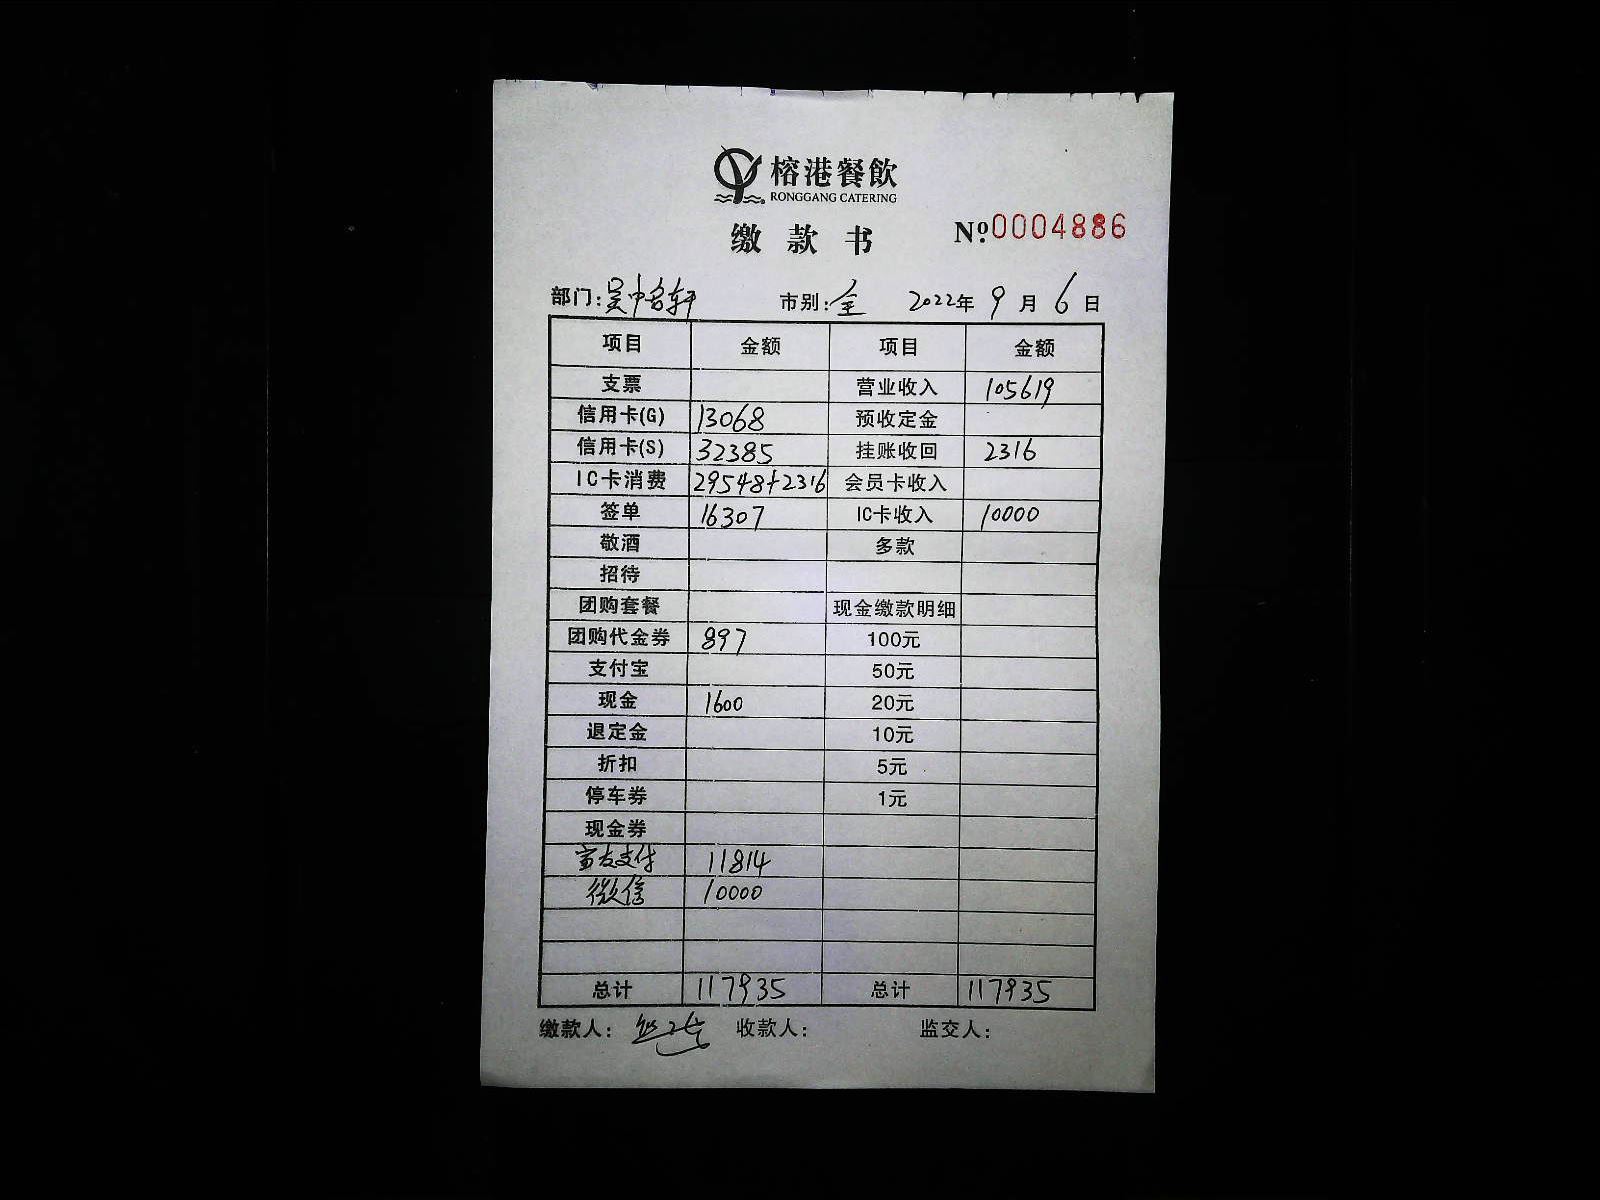 榕港餐飲
RONGGANG CATERING
缴款书 Nº.0004886
部门: 吴中名轩 市别: 全 2022年 9月 6日
项目 金额 项目 金额
支票 营业收入 105619
信用卡(G) 13068 预收定金
信用卡(S) 32385 挂账收回 2316
IC卡消费 29548+2316 会员卡收入
签单 16307 IC卡收入 10000
敬酒 多款
招待
团购套餐 现金缴款明细
团购代金券 897 100元
支付宝 50元
现金 1600 20元
退定金 10元
折扣 5元
停车券 1元
现金券
富友支付 11814
微信 10000
总计 117935 总计 117935
缴款人: 收款人: 监交人: